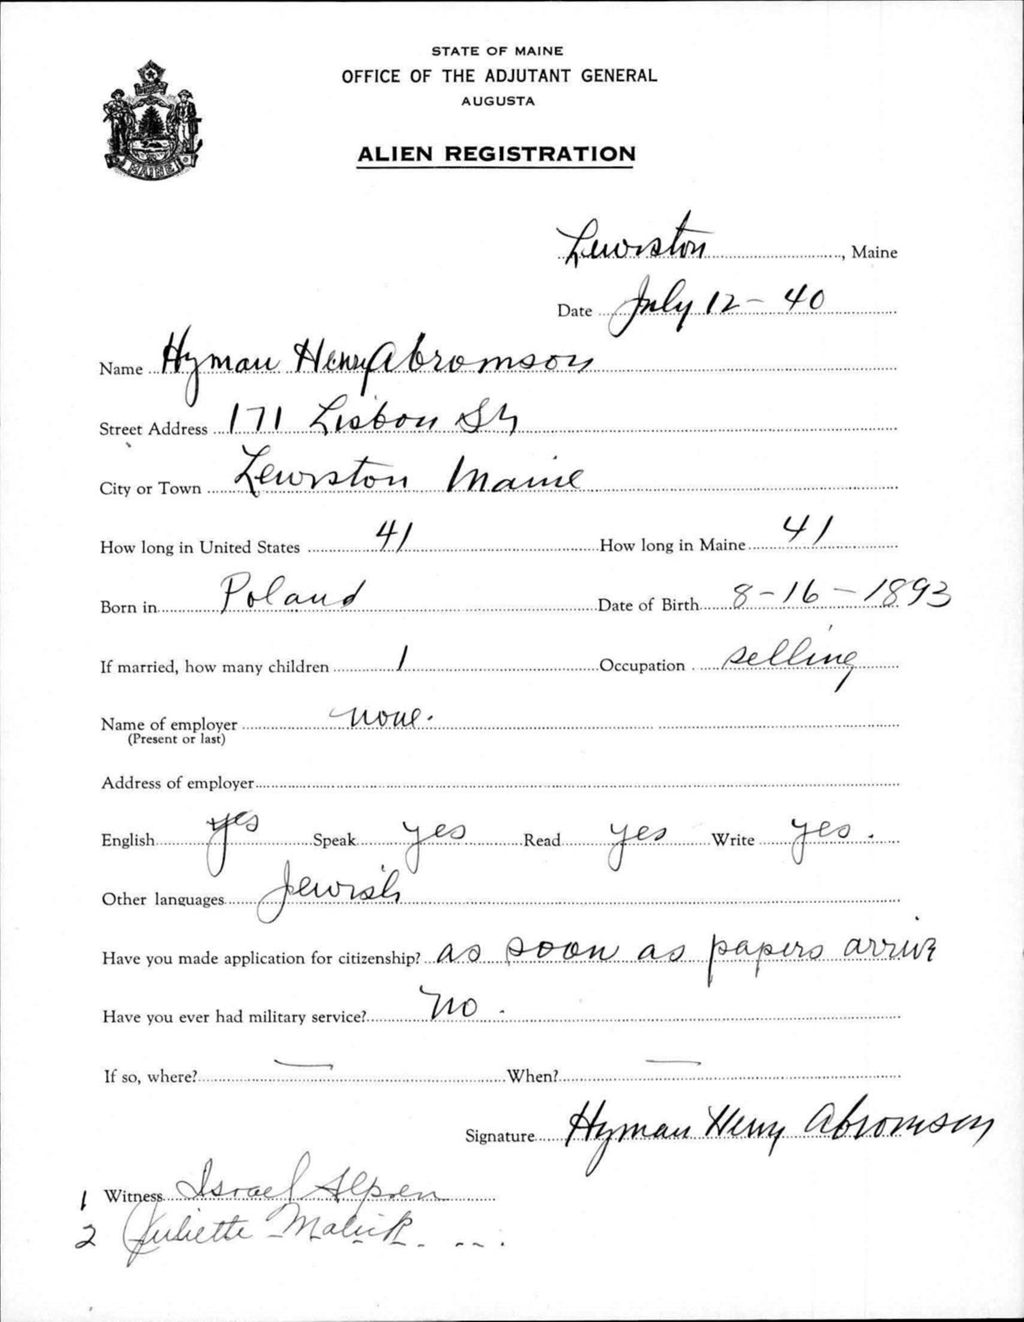 STATE OF MAINE
OFFICE OF THE ADJUTANT GENERAL
AUGUSTA
ALIEN REGISTRATION
MAINE
Lewiston, Maine
Date July 12 - 40
Name Hyman Henry Abromson
Street Address 171 Lisbon St
City or Town Lewiston Maine
How long in United States 41 How long in Maine 41
Born in Poland Date of Birth 8-16-1893
If married, how many children 1 Occupation selling
Name of employer none.
(Present or last)
Address of employer
English yes Speak yes Read yes Write yes.
Other languages Jewish
Have you made application for citizenship? as soon as papers arrive
Have you ever had military service? No.
If so, where? — When? —
Signature Hyman Henry Abromson
1 Witness Israel Alpren
2 Juliette Malick